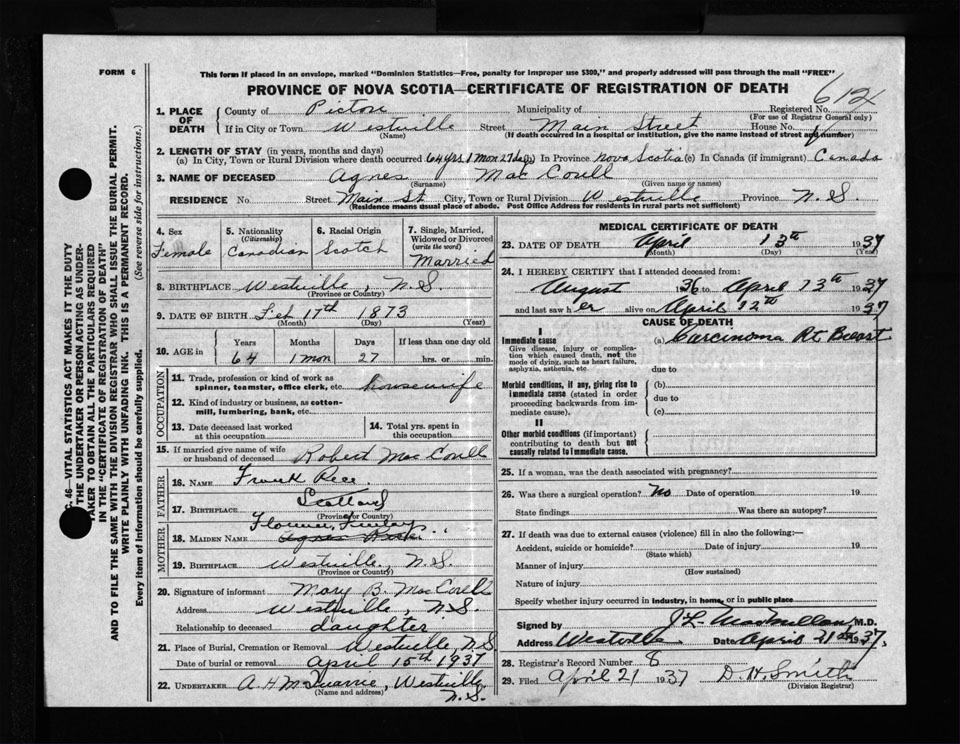 FORM 6
This form if placed in an envelope, marked "Dominion Statistics—Free, penalty for improper use $300," and properly addressed will pass through the mail "FREE"
PROVINCE OF NOVA SCOTIA—CERTIFICATE OF REGISTRATION OF DEATH
612
1. PLACE OF DEATH
County of Pictou Municipality of Registered No.
(For use of Registrar General only)
If in City or Town Westville Street Main Street House No.
(Name) (If death occurred in a hospital or institution, give the name instead of street and number)
2. LENGTH OF STAY (in years, months and days)
(a) In City, Town or Rural Division where death occurred 64 yrs 1 mon 27 days (b) In Province Nova Scotia (c) In Canada (if immigrant) Canada
3. NAME OF DECEASED Agnes
(Surname) (Given name or names)
RESIDENCE No. Street Main St City, Town or Rural Division Westville Province N.S.
(Residence means usual place of abode. Post Office Address for residents in rural parts not sufficient)
4. Sex
Female
5. Nationality
(Citizenship)
Canadian
6. Racial Origin
Scotch
7. Single, Married, Widowed or Divorced
(write the word)
Married
8. BIRTHPLACE Westville, N.S.
(Province or Country)
9. DATE OF BIRTH Feb 17th 1873
(Month) (Day) (Year)
10. AGE in
Years Months Days If less than one day old
64 1 mon 27 hrs. or min.
OCCUPATION
11. Trade, profession or kind of work as spinner, teamster, office clerk, etc. housewife
12. Kind of industry or business, as cotton-mill, lumbering, bank, etc.
13. Date deceased last worked at this occupation
14. Total yrs. spent in this occupation
15. If married give name of wife or husband of deceased Robert
FATHER
16. NAME Frank
17. BIRTHPLACE Scotland
(Province or Country)
MOTHER
18. MAIDEN NAME
19. BIRTHPLACE Westville, N.S.
(Province or Country)
20. Signature of informant Mary B.
Address Westville, N.S.
Relationship to deceased daughter
21. Place of Burial, Cremation or Removal Westville, N.S.
Date of burial or removal April 15th 1937
22. UNDERTAKER Westville, N.S.
(Name and address)
MEDICAL CERTIFICATE OF DEATH
23. DATE OF DEATH April 13th 1937
(Month) (Day) (Year)
24. I HEREBY CERTIFY that I attended deceased from:
August 1936 to April 13th 1937
and last saw her alive on April 12th 1937
CAUSE OF DEATH
I
Immediate cause
Give disease, injury or complication which caused death, not the mode of dying, such as heart failure, asphyxia, asthenia, etc.
(a) Carcinoma Rt Breast
due to
Morbid conditions, if any, giving rise to immediate cause (stated in order proceeding backwards from immediate cause).
(b)
due to
(c)
II
Other morbid conditions (if important) contributing to death but not causally related to immediate cause.
25. If a woman, was the death associated with pregnancy?
26. Was there a surgical operation? No Date of operation 19
State findings Was there an autopsy?
27. If death was due to external causes (violence) fill in also the following:—
Accident, suicide or homicide? Date of injury 19
(State which)
Manner of injury
(How sustained)
Nature of injury
Specify whether injury occurred in industry, in home, or in public place
Signed by M.D.
Address Westville Date April 21st 1937.
28. Registrar's Record Number 8
29. Filed April 21 1937 D. H. Smith
(Division Registrar)
C. 46—VITAL STATISTICS ACT MAKES IT THE DUTY
THE UNDERTAKER OR PERSON ACTING AS UNDER-
TAKER TO OBTAIN ALL THE PARTICULARS REQUIRED
IN THE "CERTIFICATE OF REGISTRATION OF DEATH"
AND TO FILE THE SAME WITH THE DIVISION REGISTRAR WHO SHALL ISSUE THE BURIAL PERMIT.
WRITE PLAINLY WITH UNFADING INK. THIS IS A PERMANENT RECORD.
Every item of information should be carefully supplied. (See reverse side for instructions.)